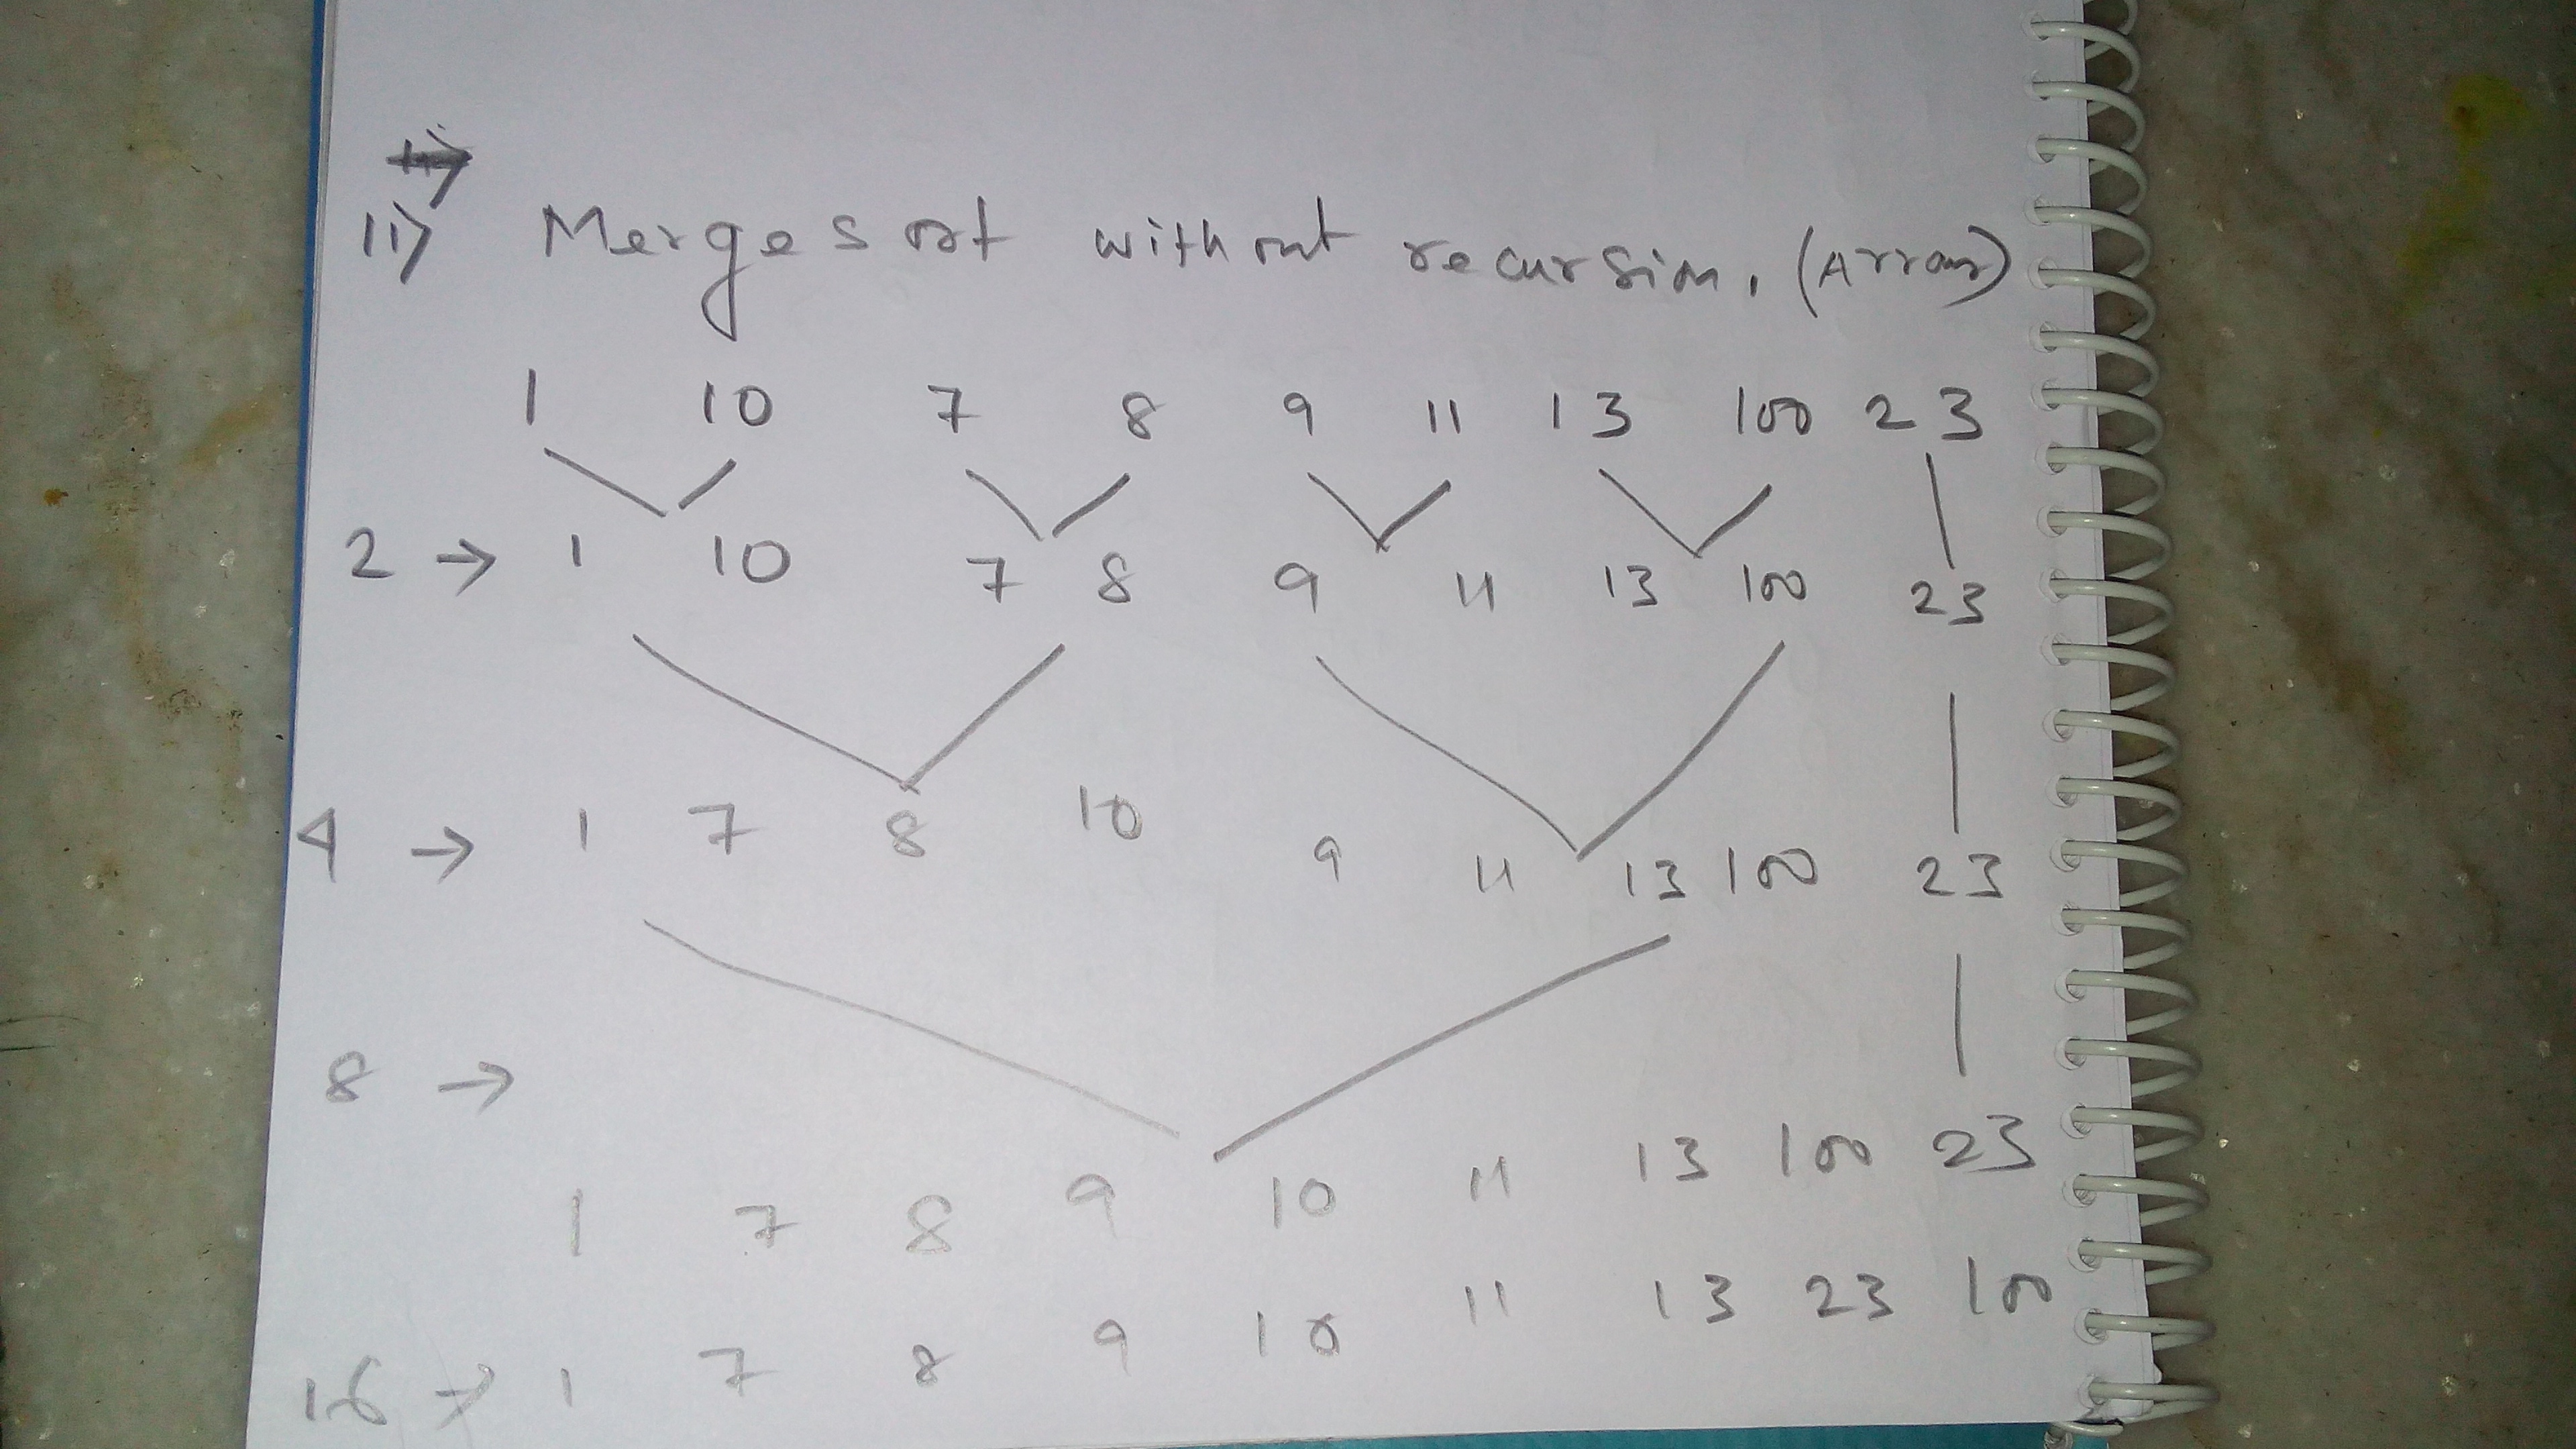 11) Merge sort without recursion. (Array)
1 10 7 8 9 11 13 100 23
2 → 1 10 7 8 9 11 13 100 23
4 → 1 7 8 10 9 11 13 100 23
8 →
1 7 8 9 10 11 13 100 23
16 → 1 7 8 9 10 11 13 23 100